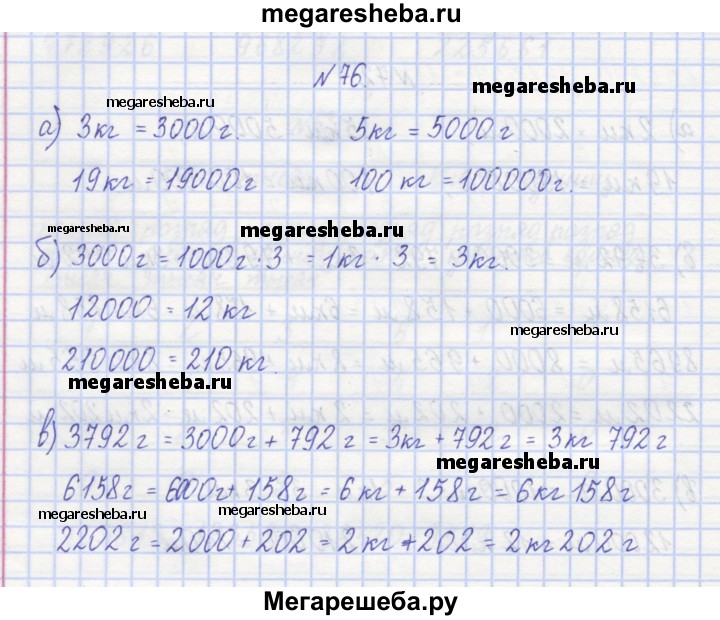 megaresheba.ru
N 76.
megaresheba.ru
megaresheba.ru
а) 3кг = 3000г. 5кг = 5000г
19кг = 19000г 100 кг = 100000г.
megaresheba.ru
megaresheba.ru
б) 3000г = 1000г · 3 = 1кг · 3 = 3кг.
12000 = 12 кг
megaresheba.ru
210000 = 210 кг.
megaresheba.ru
в) 3792 г = 3000г + 792 г = 3кг + 792 г = 3кг 792 г
megaresheba.ru
6158г = 6000г + 158г = 6 кг + 158г = 6кг 158г
megaresheba.ru
megaresheba.ru
2202 г = 2000 + 202 = 2 кг + 202 = 2 кг 202 г
Мегарешеба.ру